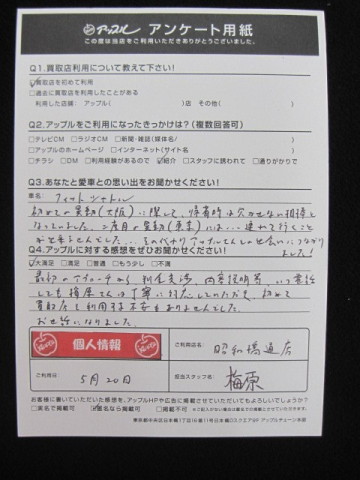 アップル アンケート用紙
この度は当店をご利用いただきありがとうございました。
Q1.買取店利用について教えて下さい!
買取店を初めて利用
過去に買取店を利用したことがある
利用した店舗: アップル( )店 その他( )
Q2.アップルをご利用になったきっかけは?(複数回答可)
テレビCM ラジオCM 新聞・雑誌(媒体名/ )
アップルのホームページ インターネット(サイト名 )
チラシ DM 利用経験があるので 紹介 スタッフに誘われて 通りがかりで
Q3.あなたと愛車との思い出をお聞かせください!
車名: フィットシャトル
初めての異動(大阪)に際して、帰省時は欠かせない相棒と
なっていました。二度目の異動(東京)には…連れて行くこと
ができませんでした…。その代わりアップルさんとの出会いにつながり
ました!
Q4.アップルに対する感想をぜひお聞かせください!
大満足 満足 普通 もう少し 不満
最初のアプローチから、
しても梅原さんは丁寧に対応していただき、初めて
買取店を利用する不安もありませんでした。
お世話になりました。
個人情報
ご利用店名:
昭和橋通店
ご利用日:
5月20日
担当スタッフ名:
梅原
お客様に書いていただいた感想を、アップルHPや広告に掲載させていただいてもよろしいでしょうか?
実名で掲載可 匿名なら掲載可 掲載不可